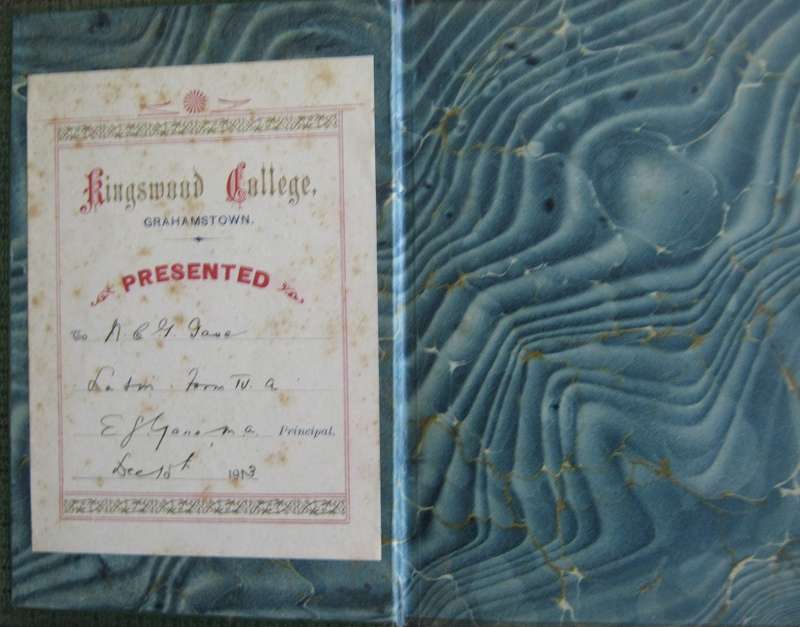 Kingswood College,
GRAHAMSTOWN.
PRESENTED
To N C G
Latin Form IV. A
E G Gane, M.A. Principal.
Dec 15th 1913